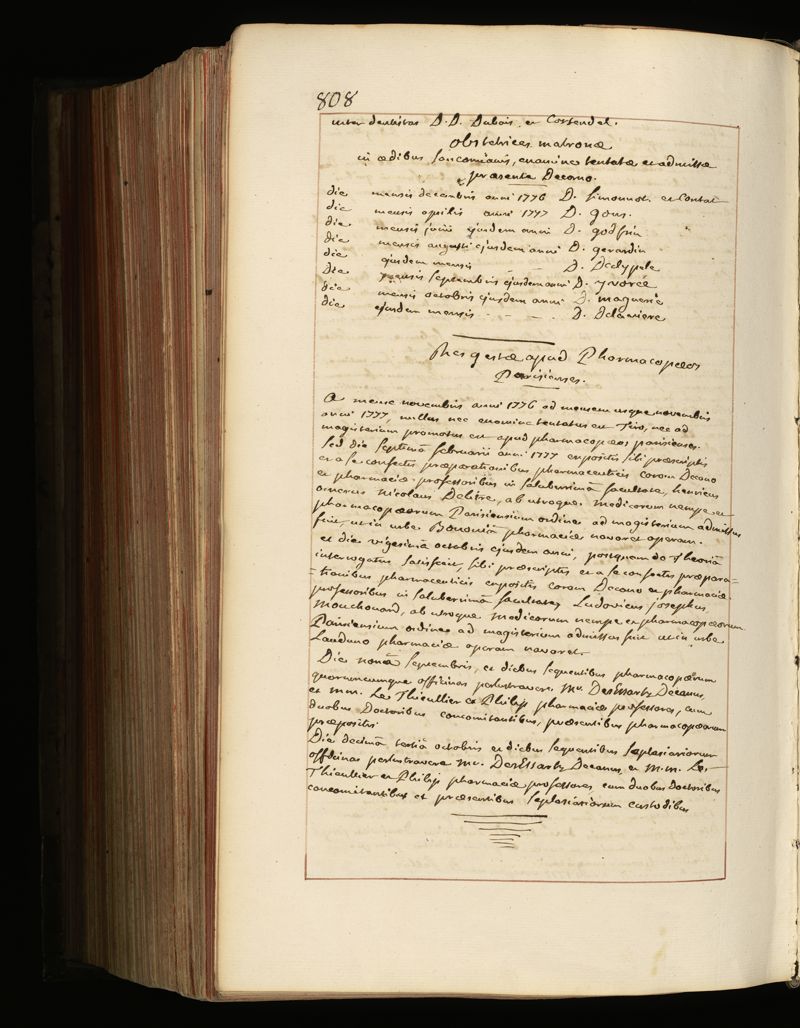 808
inter dentistas D.D. Dubois et Costendel.
obstetrices matronæ
in ædibus sancomianis, examine tentatæ et admissæ
præsente Decano.
die mensis decembris anni 1776 D. simonnot et Contat
die mensis aprilis anni 1777 D. gons.
die mensis junii ejusdem anni D. godfrin
die mensis augusti ejusdem anni D. gerardin
die ejusdem mensis - - D. Delyple
die mensis septembris ejusdem anni D. yvorée
die mensis octobris ejusdem anni D. magnerie
die ejusdem mensis - - - D. Delaviere
Res gestæ apud Pharmacopæos
Parisienses.
A mense novembris anni 1776 ad mensem usque novembris
anni 1777, nullus nec examine tentatus est Tiro, nec ad
magisterium promotus est apud pharmacopæos parisienses.
Sed die septimâ februarii anni 1777 expositis sibi præscriptis
et a se confectis præparationibus pharmaceuticis coram Decano
et pharmaciæ professoribus in saluberrimâ facultate, henricus
omerus Nicolaus Delitre, ab utroque medicorum nempe et
pharmacopæorum Parisiensium ordine ad magisterium admissus
fuit, ut in urbe Bononiâ pharmaciæ navaret operam.
et die vigesimâ octobris ejusdem anni, postquam de Theoriâ
interrogatus satisfecit, sibi præscriptis et a se confectis præpara-
tionibus pharmaceuticis expositis coram Decano et pharmaciæ
professoribus in saluberrimâ facultate, Ludovicus josephus
Mouchouard, ab utroque medicorum nempe et pharmacopæorum
Parisiensium ordine ad magisterium admissus fuit ut in urbe
Lauduno pharmaciæ operam navaret.
Die nonâ septembris, et diebus sequentibus pharmacopæorum
quorumcumque officinas perlustravere Mr. DesEssartz Decanus,
et mm. Le Thieullier et Philip pharmaciæ professores, cum
duobus Doctoribus concomitantibus, præsentibus pharmacopæorum
præpositis
Die decimâ tertiâ octobris et diebus sequentibus seplasiariorum
officinas perlustravere mr. DesEssartz Decanus, et m.m. Le
Thieullier et Philip pharmaciæ professores cum duobus Doctoribus
concomitantibus et præsentibus seplasiariorum custodibus